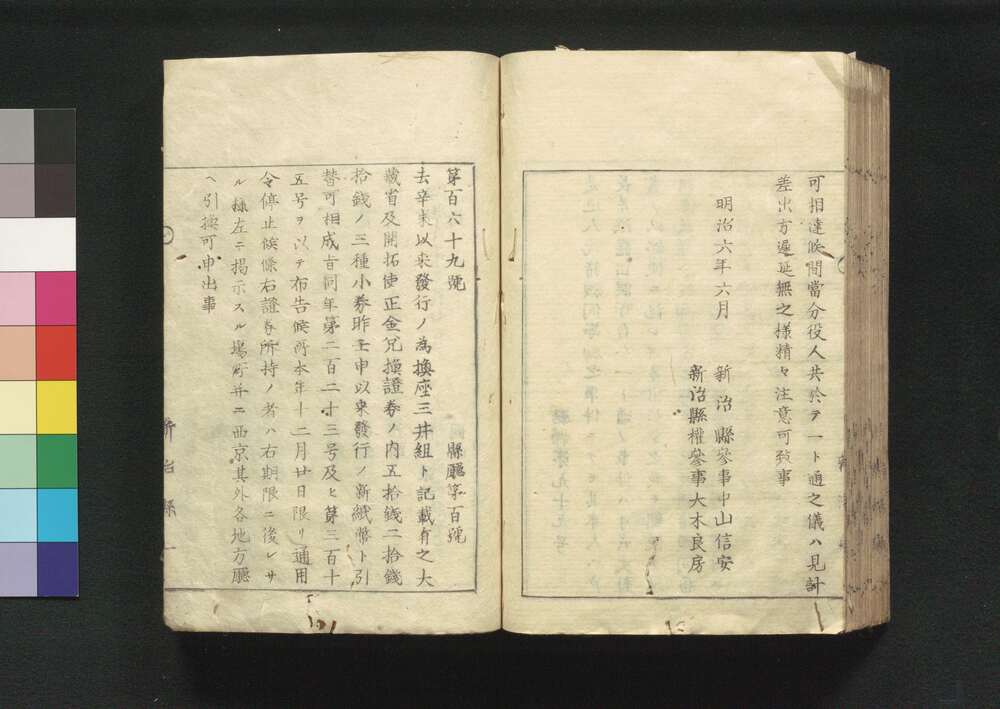 可相達候間當分役人共於テ一ト通之儀ハ見計
差出方遅延無之様精々注意可致事
明治六年六月
新治縣參事中山信安
新治縣權參事大木良房
第百六十九號
縣廳第百號
去辛未以来發行ノ為換座三井組ト記載有之大
藏省及開拓使正金兌換證券ノ内五拾錢二拾錢
拾錢ノ三種小券昨壬申以来發行ノ新紙幣ト引
替可相成旨同年第二百二十三号及ヒ第三百十
五号ヲ以テ布告候所本年十二月廿日限リ通用
令停止候條右證券所持ノ者ハ右期限ニ後レサ
ル様左ニ掲示スル場所并ニ西京其外各地方廳
ヘ引換可申出事
新治縣